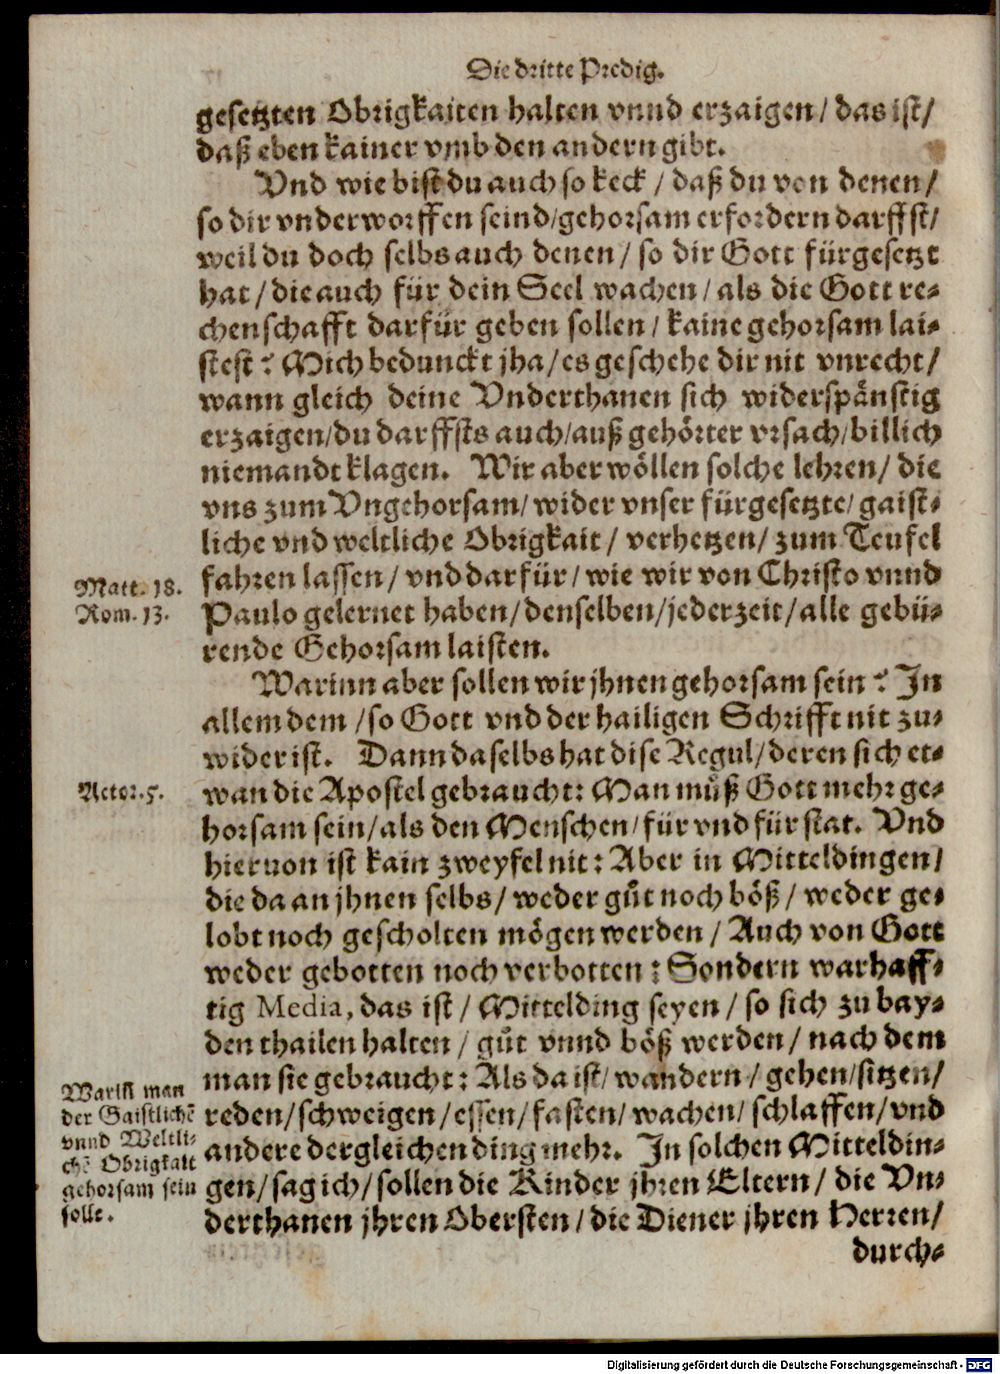 Die dritte Predig.
gesetzten Obrigkaiten halten vnnd erzaigen / das ist /
daß eben kainer vmb den andern gibt.
Vnd wie bist du auch so keck / daß du von denen /
so dir vnderworffen seind / gehorsam erfordern darffst /
weil du doch selbs auch denen / so dir Gott fürgesetzt
hat / die auch für dein Seel wachen / als die Gott re-
chenschafft darfür geben sollen / kaine gehorsam lai-
stest ? Mich bedunckt jha / es geschehe dir nit vnrecht /
wann gleich deine Vnderthanen sich widerspänstig
erzaigen / du darffsts auch / auß gehörter vrsach / billich
niemandt klagen. Wir aber wöllen solche lehren / die
vns zum Vngehorsam / wider vnser fürgesetzte / gaist-
liche vnd weltliche Obrigkait / verhetzen / zum Teufel
Matt. 18.
fahren lassen / vnd darfür / wie wir von Christo vnnd
Rom. 13.
Paulo gelernet haben / denselben / jederzeit / alle gebü-
rende Gehorsam laisten.
Warinn aber sollen wir jhnen gehorsam sein ? In
allem dem / so Gott vnd der hailigen Schrifft nit zu-
wider ist. Dann daselbs hat dise Regul / deren sich et-
Actor. 5.
wan die Apostel gebraucht: Man můß Gott mehr ge-
horsam sein / als den Menschen / für vnd für stat. Vnd
hieruon ist kain zweyfel nit: Aber in Mitteldingen /
die da an jhnen selbs / weder gůt noch böß / weder ge-
lobt noch gescholten mögen werden / Auch von Gott
weder gebotten noch verbotten: Sondern warhaff-
tig Media, das ist / Mittelding seyen / so sich zu bay-
den thailen halten / gůt vnnd böß werden / nach dem
man sie gebraucht: Als da ist / wandern / gehen / sitzen /
reden / schweigen / essen / fasten / wachen / schlaffen / vnd
andere dergleichen ding mehr. In solchen Mitteldin-
gen / sag ich / sollen die Kinder jhren Eltern / die Vn-
derthanen jhren Obersten / die Diener jhren Herren /
Wariñ man
der Gaistlichẽ
vnnd Weltli-
chẽ Obrigkait
gehorsam sein
solle.
durch-
Digitalisierung gefördert durch die Deutsche Forschungsgemeinschaft - DFG